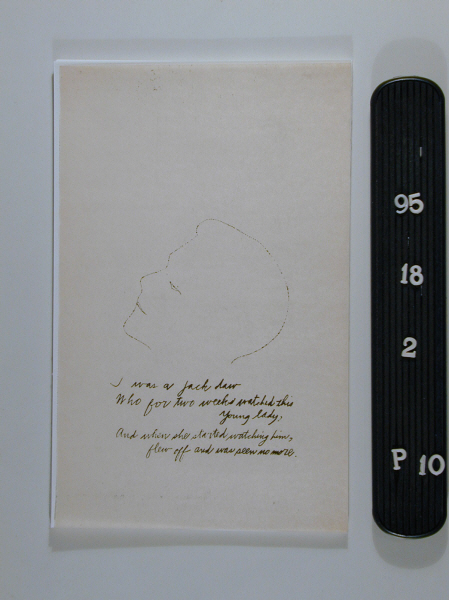 I was a jack daw
Who for two weeks watched this
Young lady,
And when she started watching him,
flew off and was seen no more.
95
18
2
P 10